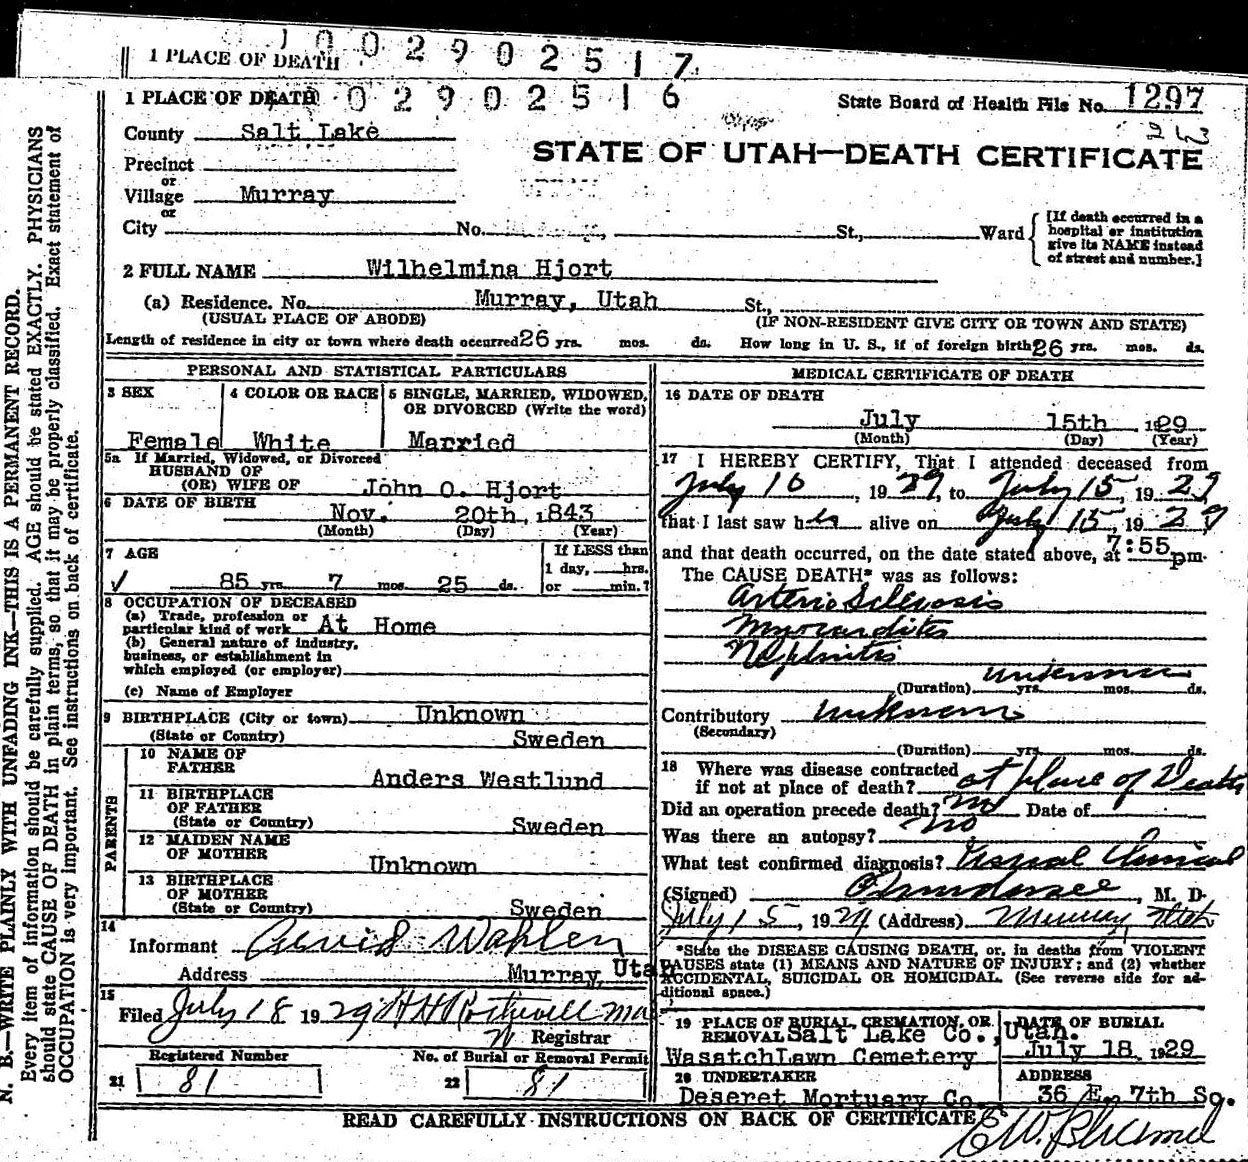 1 PLACE OF DEATH
1 0 0 2 9 0 2 5 1 7
1 PLACE OF DEATH
0 2 9 0 2 5 1 6
State Board of Health File No. 1297
243
County Salt Lake
STATE OF UTAH—DEATH CERTIFICATE
Precinct
or
Village Murray
or
City No. St., Ward
[If death occurred in a hospital or institution give its NAME instead of street and number.]
2 FULL NAME Wilhelmina Hjort
(a) Residence. No. Murray, Utah St.,
(USUAL PLACE OF ABODE) (IF NON-RESIDENT GIVE CITY OR TOWN AND STATE)
Length of residence in city or town where death occurred 26 yrs. mos. ds. How long in U. S., if of foreign birth 26 yrs. mos. ds.
PERSONAL AND STATISTICAL PARTICULARS
3 SEX
Female
4 COLOR OR RACE
White
5 SINGLE, MARRIED, WIDOWED, OR DIVORCED (Write the word)
Married
5a If Married, Widowed, or Divorced
HUSBAND OF
(OR) WIFE OF John O. Hjort
6 DATE OF BIRTH
Nov. 20th, 1843
(Month) (Day) (Year)
7 AGE
If LESS than
1 day, hrs.
or min.?
✓ 85 yrs. 7 mos. 25 ds.
8 OCCUPATION OF DECEASED
(a) Trade, profession or
particular kind of work At Home
(b) General nature of industry,
business, or establishment in
which employed (or employer)
(c) Name of Employer
9 BIRTHPLACE (City or town) Unknown
(State or Country) Sweden
PARENTS
10 NAME OF
FATHER Anders Westlund
11 BIRTHPLACE
OF FATHER
(State or Country) Sweden
12 MAIDEN NAME
OF MOTHER Unknown
13 BIRTHPLACE
OF MOTHER
(State or Country) Sweden
14
Informant Wahlen
Address Murray, Utah
15
Filed July 18 1929
Registrar
Registered Number No. of Burial or Removal Permit
21 81 22 81
MEDICAL CERTIFICATE OF DEATH
16 DATE OF DEATH
July 15th, 1929
(Month) (Day) (Year)
17 I HEREBY CERTIFY, That I attended deceased from
July 10, 1929, to July 15, 1929
that I last saw her alive on July 15, 1929
and that death occurred, on the date stated above, at 7:55 pm.
The CAUSE DEATH* was as follows:
Arterio Sclerosis
Myocarditis
Nephritis
(Duration) yrs. mos. ds.
Contributory unknown
(Secondary)
(Duration) yrs. mos. ds.
18 Where was disease contracted
if not at place of death? at place of Death
Did an operation precede death? no Date of
Was there an autopsy? no
What test confirmed diagnosis? Usual Clinical
(Signed) , M. D.
July 15, 1929 (Address) Murray, Utah
*State the DISEASE CAUSING DEATH, or, in deaths from VIOLENT
CAUSES state (1) MEANS AND NATURE OF INJURY; and (2) whether
ACCIDENTAL, SUICIDAL OR HOMICIDAL. (See reverse side for ad-
ditional space.)
19 PLACE OF BURIAL, CREMATION, OR
REMOVAL Salt Lake Co., Utah.
WasatchLawn Cemetery
DATE OF BURIAL
July 18, 1929
20 UNDERTAKER
Deseret Mortuary Co.
ADDRESS
36 E. 7th So.
READ CAREFULLY INSTRUCTIONS ON BACK OF CERTIFICATE
N. B.—WRITE PLAINLY WITH UNFADING INK—THIS IS A PERMANENT RECORD.
Every item of information should be carefully supplied. AGE should be stated EXACTLY. PHYSICIANS
should state CAUSE OF DEATH in plain terms, so that it may be properly classified. Exact statement of
OCCUPATION is very important. See instructions on back of certificate.